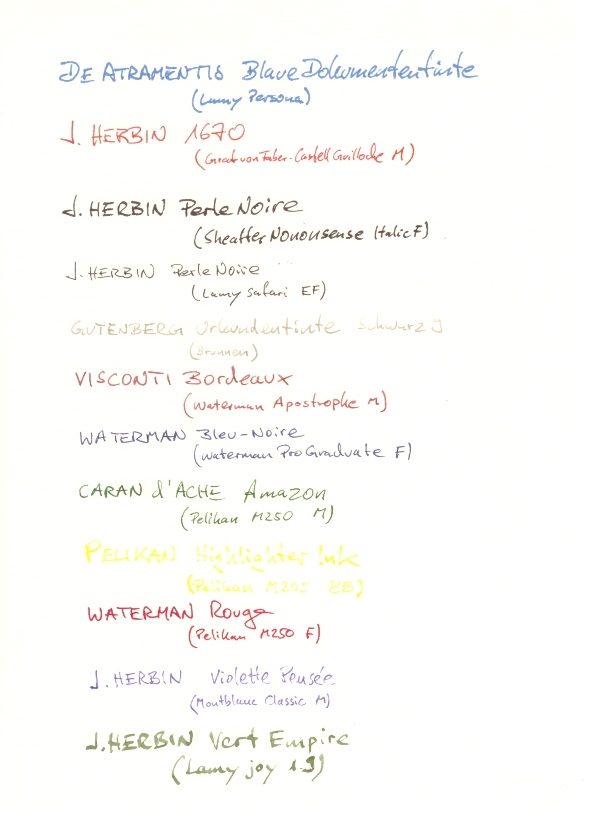 DE ATRAMENTIS Blaue Dokumententinte
(Lamy Persona)
J. HERBIN 1670
(Graf von Faber-Castell Guilloche M)
J. HERBIN Perle Noire
(Sheaffer Nononsense Italic F)
J. HERBIN Perle Noire
(Lamy Safari EF)
GUTENBERG Urkundentinte Schwarz G
(Brunnen)
VISCONTI Bordeaux
(Waterman Apostrophe M)
WATERMAN Bleu-Noire
(Waterman ProGraduate F)
CARAN d'ACHE Amazon
(Pelikan M250 M)
PELIKAN Highlighter Ink
(Pelikan M205 BB)
WATERMAN Rouge
(Pelikan M250 F)
J. HERBIN Violette Pensée
(Montblanc Classic M)
J. HERBIN Vert Empire
(Lamy joy 1.9)